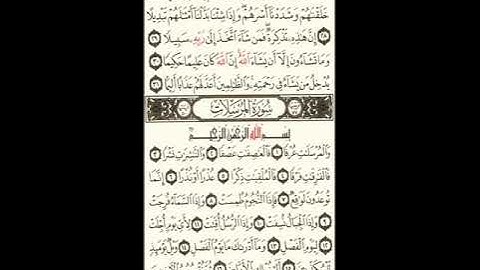 خَلَقْنَٰهُمْ وَشَدَدْنَآ أَسْرَهُمْ ۖ وَإِذَا شِئْنَا بَدَّلْنَآ أَمْثَٰلَهُمْ تَبْدِيلًا
٢٨ إِنَّ هَٰذِهِۦ تَذْكِرَةٌ ۖ فَمَن شَآءَ ٱتَّخَذَ إِلَىٰ رَبِّهِۦ سَبِيلًا
٢٩ وَمَا تَشَآءُونَ إِلَّآ أَن يَشَآءَ ٱللَّهُ ۚ إِنَّ ٱللَّهَ كَانَ عَلِيمًا حَكِيمًا
٣٠ يُدْخِلُ مَن يَشَآءُ فِى رَحْمَتِهِۦ ۚ وَٱلظَّٰلِمِينَ أَعَدَّ لَهُمْ عَذَابًا أَلِيمًۢا ٣١
سُورَةُ الْمُرْسَلَاتِ
بِسْمِ ٱللَّهِ ٱلرَّحْمَٰنِ ٱلرَّحِيمِ
وَٱلْمُرْسَلَٰتِ عُرْفًا ١ فَٱلْعَٰصِفَٰتِ عَصْفًا ٢ وَٱلنَّٰشِرَٰتِ نَشْرًا ٣
فَٱلْفَٰرِقَٰتِ فَرْقًا ٤ فَٱلْمُلْقِيَٰتِ ذِكْرًا ٥ عُذْرًا أَوْ نُذْرًا ٦ إِنَّمَا
تُوعَدُونَ لَوَٰقِعٌ ٧ فَإِذَا ٱلنُّجُومُ طُمِسَتْ ٨ وَإِذَا ٱلسَّمَآءُ فُرِجَتْ
٩ وَإِذَا ٱلْجِبَالُ نُسِفَتْ ١٠ وَإِذَا ٱلرُّسُلُ أُقِّتَتْ ١١ لِأَىِّ يَوْمٍ أُجِّلَتْ
١٢ لِيَوْمِ ٱلْفَصْلِ ١٣ وَمَآ أَدْرَىٰكَ مَا يَوْمُ ٱلْفَصْلِ ١٤ وَيْلٌ يَوْمَئِذٍ